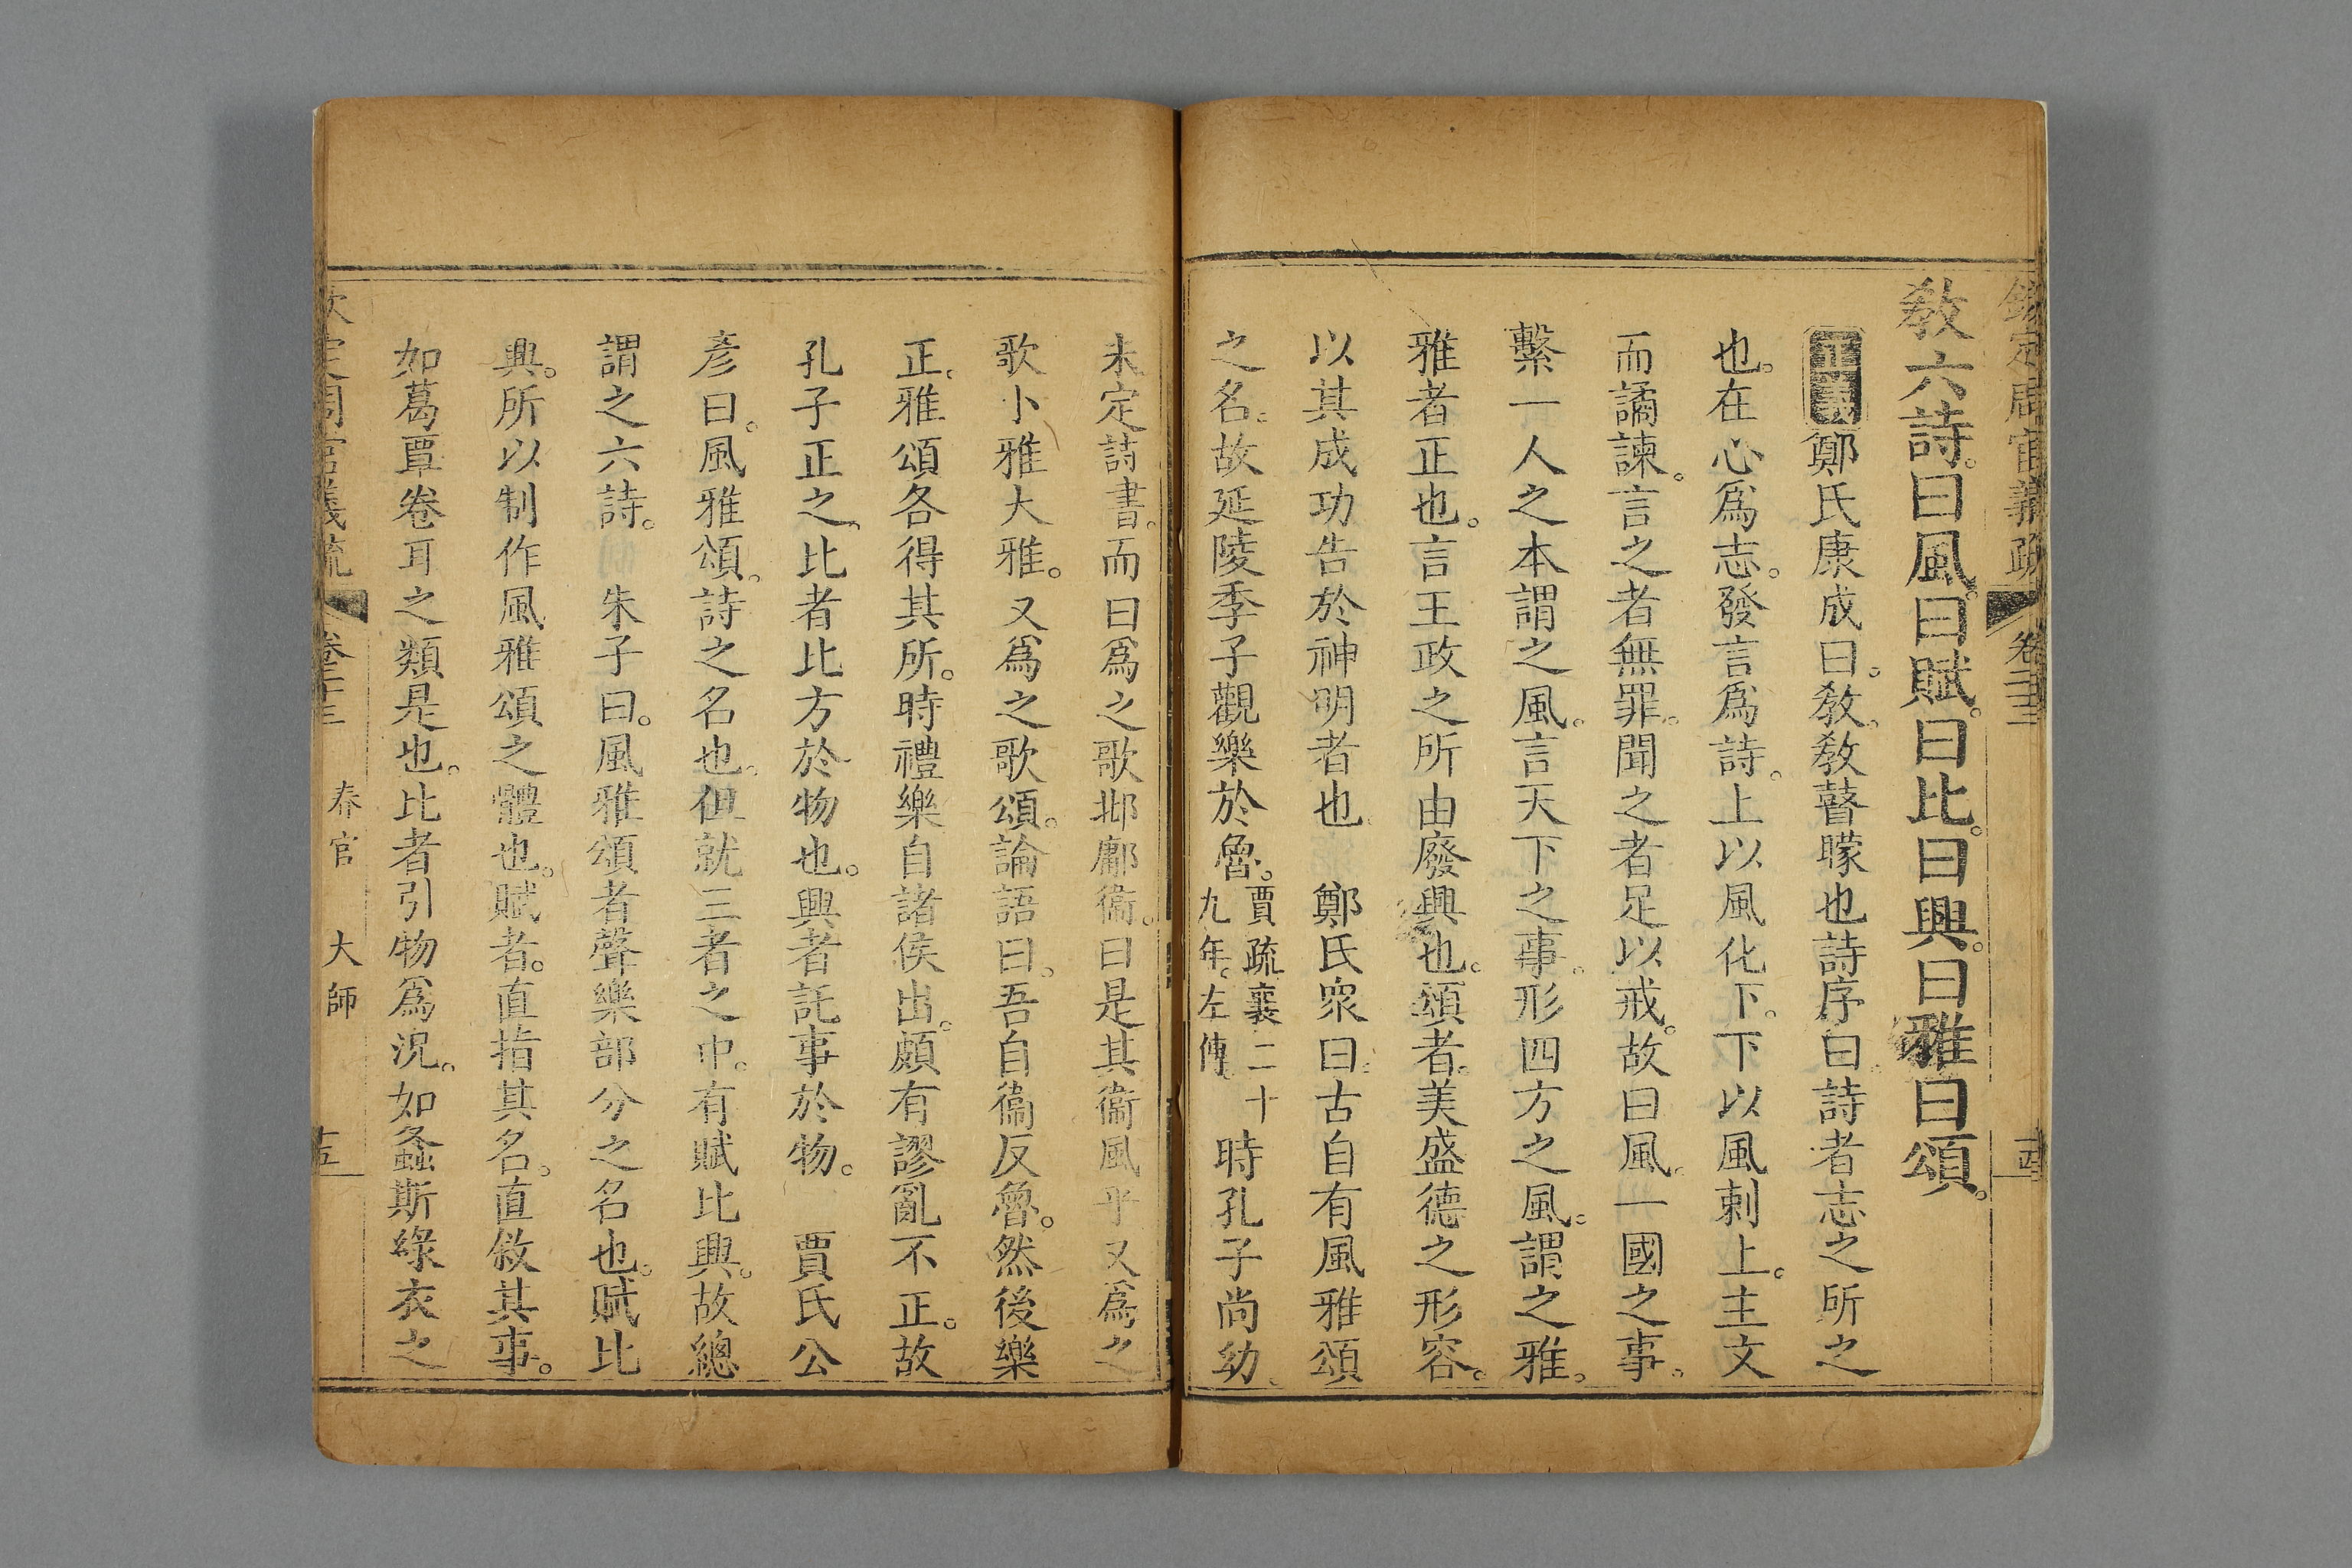 欽定周官義疏 卷二十三 十四
敎六詩。曰風。曰賦。曰比。曰興。曰雅曰頌。
正義鄭氏康成曰。敎。敎瞽矇也詩序曰。詩者志之所之
也。在心爲志。發言爲詩。上以風化下。下以風刺上。主文
而譎諫。言之者無罪。聞之者足以戒。故曰風。一國之事。
繫一人之本謂之風。言天下之事。形四方之風。謂之雅。
雅者正也。言王政之所由廢興也。頌者。美盛德之形容。
以其成功告於神明者也 鄭氏衆曰。古自有風雅頌
之名。故延陵季子觀樂於魯。賈疏襄二十九年。左傳。時孔子尚幼。
未定詩書。而曰爲之歌邶鄘衞。曰是其衞風乎又爲之
歌小雅大雅。又爲之歌頌。論語曰。吾自衞反魯。然後樂
正。雅頌各得其所。時禮樂自諸侯出。頗有謬亂不正。故
孔子正之。比者比方於物也。興者託事於物。 賈氏公
彥曰。風雅頌。詩之名也。但就三者之中。有賦比興。故總
謂之六詩。 朱子曰。風雅頌者聲樂部分之名也。賦比
興。所以制作風雅頌之體也。賦者。直指其名。直敘其事。
如葛覃卷耳之類是也。比者引物爲況。如螽斯綠衣之
欽定周官義疏 卷二十三 春官 大師 十五